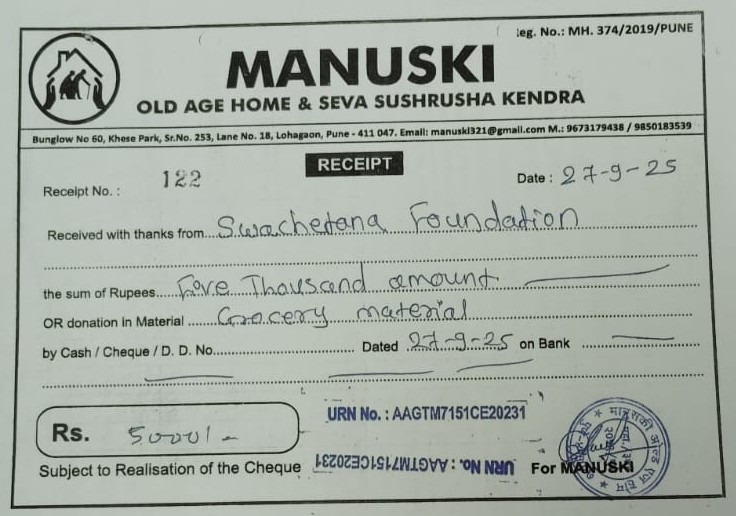 Reg. No.: MH. 374/2019/PUNE
MANUSKI
OLD AGE HOME & SEVA SUSHRUSHA KENDRA
Bunglow No 60, Khese Park, Sr.No. 253, Lane No. 18, Lohagaon, Pune - 411 047. Email: manuski321@gmail.com M.: 9673179438 / 9850183539
RECEIPT
Receipt No. : 122 Date : 27-9-25
Received with thanks from Swachetana Foundation
the sum of Rupees Five Thousand amount
OR donation in Material Grocery material
by Cash / Cheque / D. D. No. Dated 27-9-25 on Bank
URN No. : AAGTM7151CE20231
Rs. 5000/-
URN No. : AAGTM7151CE20231
Subject to Realisation of the Cheque For MANUSKI